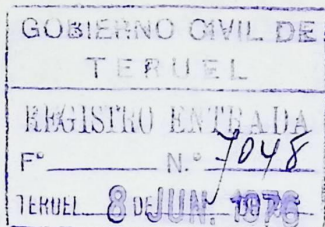 GOBIERNO CIVIL DE
TERUEL
REGISTRO ENTRADA
Fº N.º 7048
TERUEL 8 DE JUN. 1976